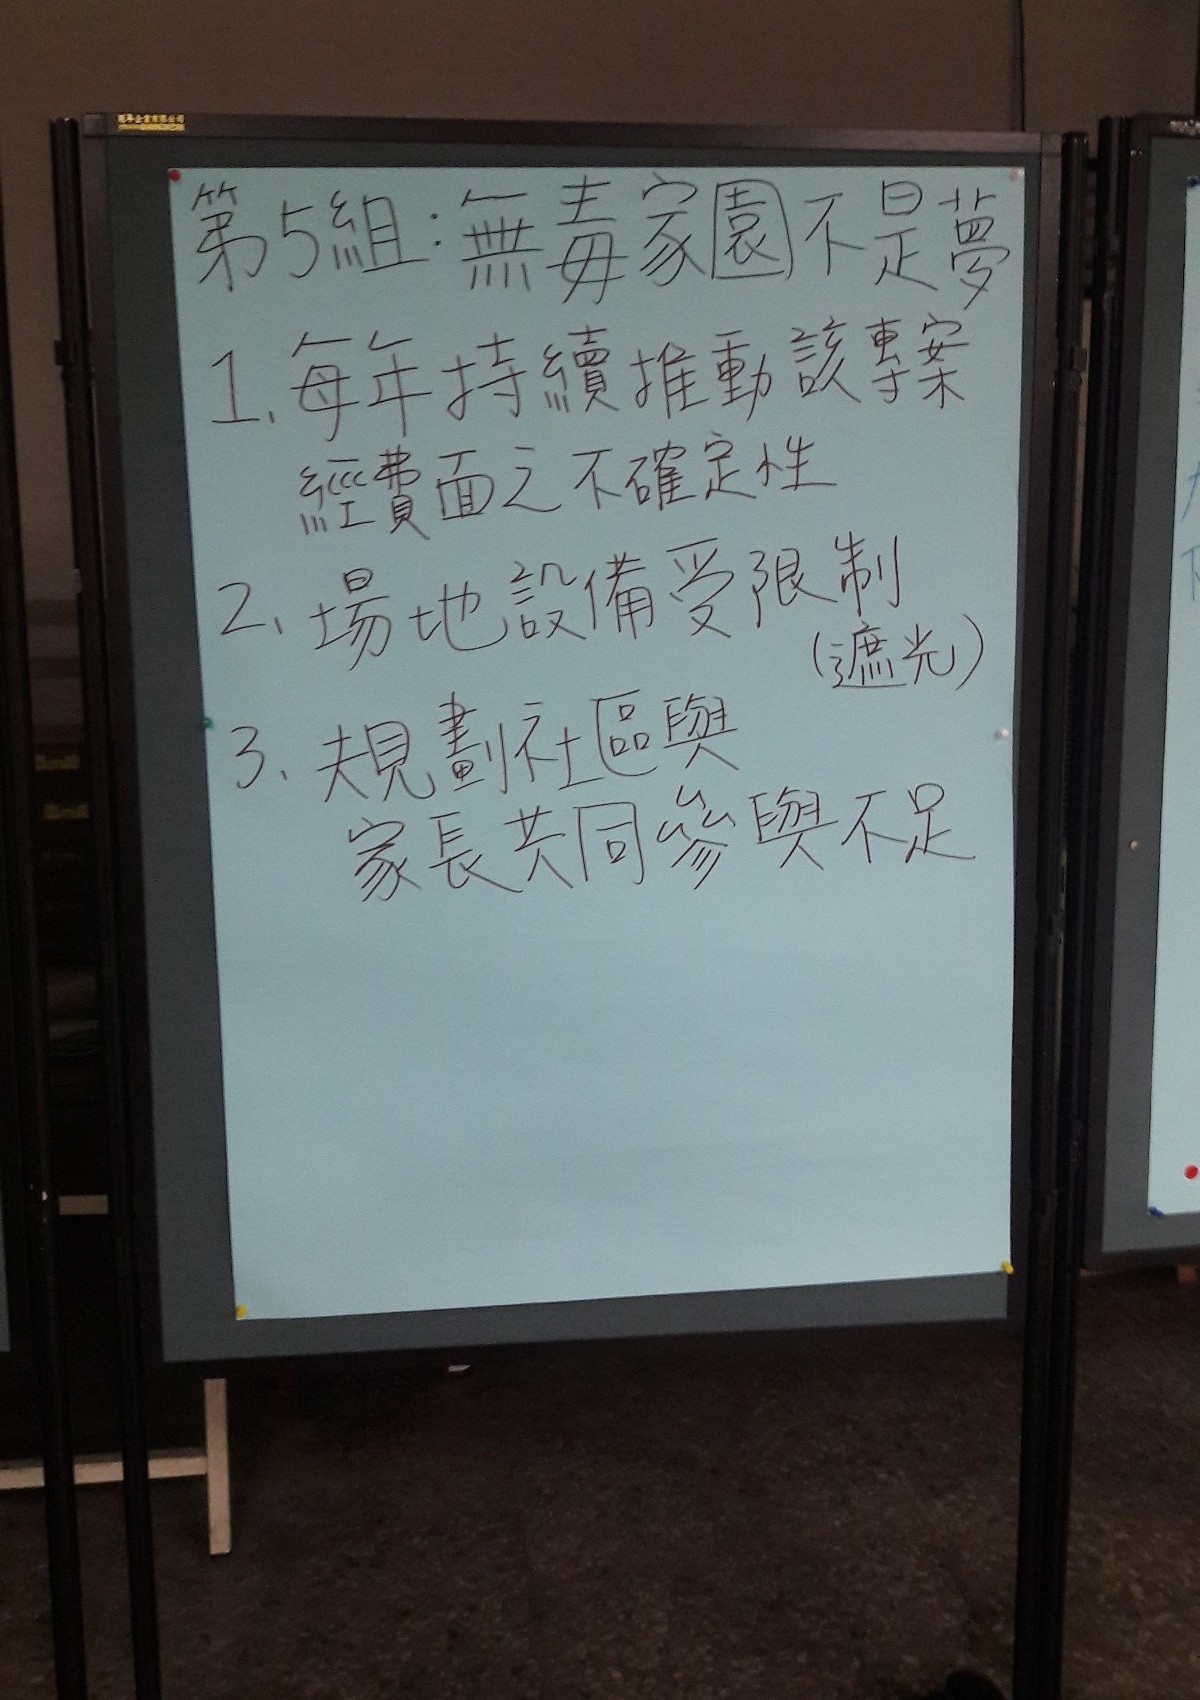 第5組:無毒家園不是夢
1.每年持續推動該專案
經費面之不確定性
2.場地設備受限制
(遮光)
3.規劃社區與
家長共同參與不足